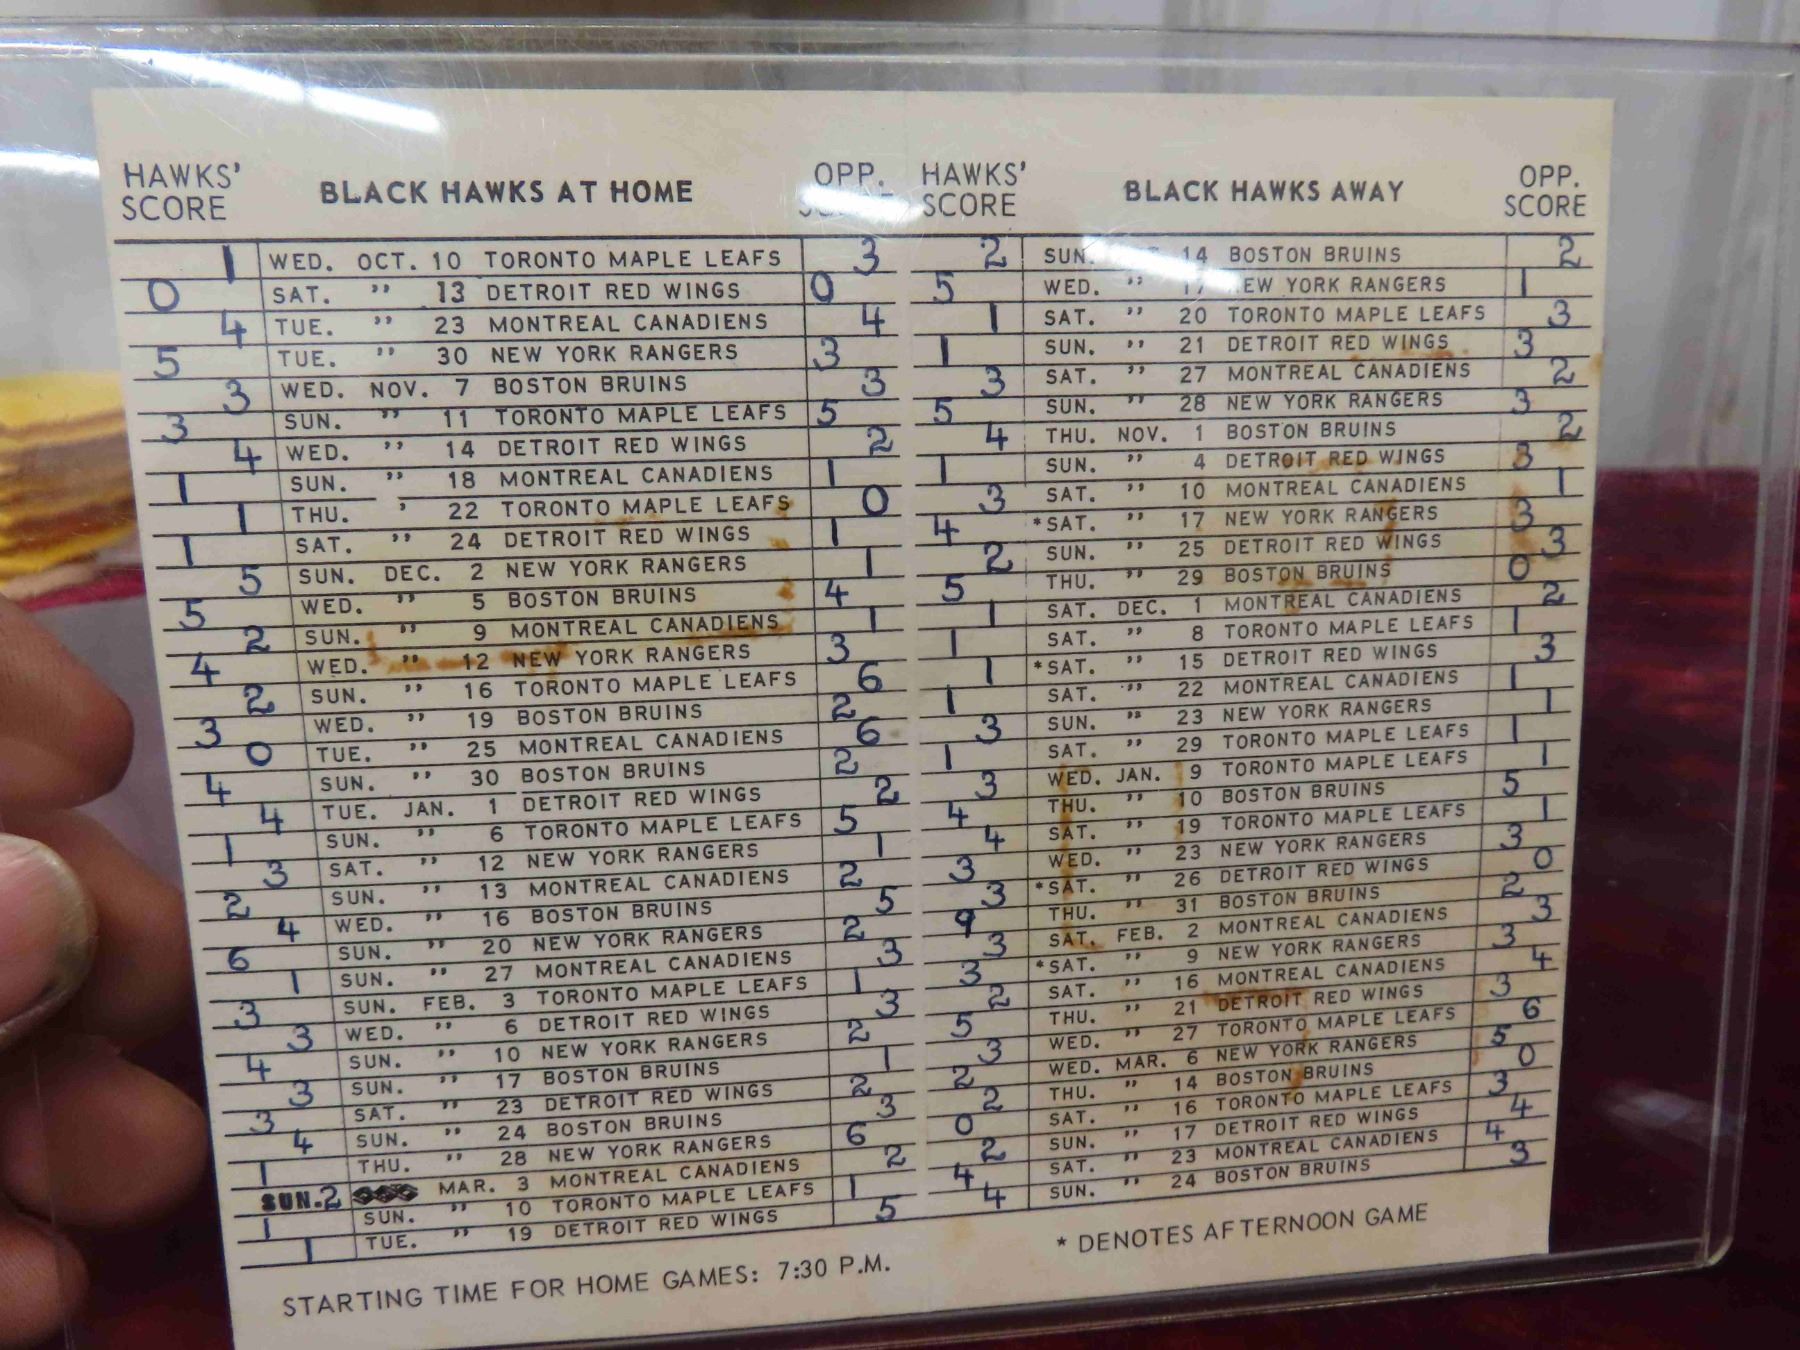 HAWKS' SCORE BLACK HAWKS AT HOME OPP.
1 WED. OCT. 10 TORONTO MAPLE LEAFS 3
0 SAT. " 13 DETROIT RED WINGS 0
4 TUE. " 23 MONTREAL CANADIENS 4
5 TUE. " 30 NEW YORK RANGERS 3
3 WED. NOV. 7 BOSTON BRUINS 3
3 SUN. " 11 TORONTO MAPLE LEAFS 5
4 WED. " 14 DETROIT RED WINGS 2
1 SUN. " 18 MONTREAL CANADIENS 1
1 THU. ' 22 TORONTO MAPLE LEAFS 0
1 SAT. " 24 DETROIT RED WINGS 1
5 SUN. DEC. 2 NEW YORK RANGERS 1
5 WED. " 5 BOSTON BRUINS 4
2 SUN. " 9 MONTREAL CANADIENS 1
4 WED. " 12 NEW YORK RANGERS 3
2 SUN. " 16 TORONTO MAPLE LEAFS 6
3 WED. " 19 BOSTON BRUINS 2
0 TUE. " 25 MONTREAL CANADIENS 6
4 SUN. " 30 BOSTON BRUINS 2
4 TUE. JAN. 1 DETROIT RED WINGS 2
1 SUN. " 6 TORONTO MAPLE LEAFS 5
3 SAT. " 12 NEW YORK RANGERS 1
2 SUN. " 13 MONTREAL CANADIENS 2
4 WED. " 16 BOSTON BRUINS 5
6 SUN. " 20 NEW YORK RANGERS 2
1 SUN. " 27 MONTREAL CANADIENS 3
3 SUN. FEB. 3 TORONTO MAPLE LEAFS 1
3 WED. " 6 DETROIT RED WINGS 3
4 SUN. " 10 NEW YORK RANGERS 2
3 SUN. " 17 BOSTON BRUINS 1
3 SAT. " 23 DETROIT RED WINGS 2
4 SUN. " 24 BOSTON BRUINS 3
1 THU. " 28 NEW YORK RANGERS 6
SUN. 2 MAR. 3 MONTREAL CANADIENS 2
1 SUN. " 10 TORONTO MAPLE LEAFS 1
1 TUE. " 19 DETROIT RED WINGS 5
STARTING TIME FOR HOME GAMES: 7:30 P.M.
HAWKS' SCORE BLACK HAWKS AWAY OPP. SCORE
2 SUN. 14 BOSTON BRUINS 2
5 WED. " 17 NEW YORK RANGERS 1
1 SAT. " 20 TORONTO MAPLE LEAFS 3
1 SUN. " 21 DETROIT RED WINGS 3
3 SAT. " 27 MONTREAL CANADIENS 2
5 SUN. " 28 NEW YORK RANGERS 3
4 THU. NOV. 1 BOSTON BRUINS 2
1 SUN. " 4 DETROIT RED WINGS 3
3 SAT. " 10 MONTREAL CANADIENS 1
4 *SAT. " 17 NEW YORK RANGERS 3
2 SUN. " 25 DETROIT RED WINGS 3
5 THU. " 29 BOSTON BRUINS 0
1 SAT. DEC. 1 MONTREAL CANADIENS 2
1 SAT. " 8 TORONTO MAPLE LEAFS 1
1 *SAT. " 15 DETROIT RED WINGS 3
1 SAT. " 22 MONTREAL CANADIENS 1
3 SUN. " 23 NEW YORK RANGERS 1
1 SAT. " 29 TORONTO MAPLE LEAFS 1
3 WED. JAN. 9 TORONTO MAPLE LEAFS 1
4 THU. " 10 BOSTON BRUINS 5
4 SAT. " 19 TORONTO MAPLE LEAFS 1
3 WED. " 23 NEW YORK RANGERS 3
3 *SAT. " 26 DETROIT RED WINGS 0
9 THU. " 31 BOSTON BRUINS 2
3 SAT. FEB. 2 MONTREAL CANADIENS 3
3 *SAT. " 9 NEW YORK RANGERS 3
2 SAT. " 16 MONTREAL CANADIENS 4
5 THU. " 21 DETROIT RED WINGS 3
3 WED. " 27 TORONTO MAPLE LEAFS 6
2 WED. MAR. 6 NEW YORK RANGERS 5
2 THU. " 14 BOSTON BRUINS 0
0 SAT. " 16 TORONTO MAPLE LEAFS 3
2 SUN. " 17 DETROIT RED WINGS 4
4 SAT. " 23 MONTREAL CANADIENS 4
4 SUN. " 24 BOSTON BRUINS 3
* DENOTES AFTERNOON GAME